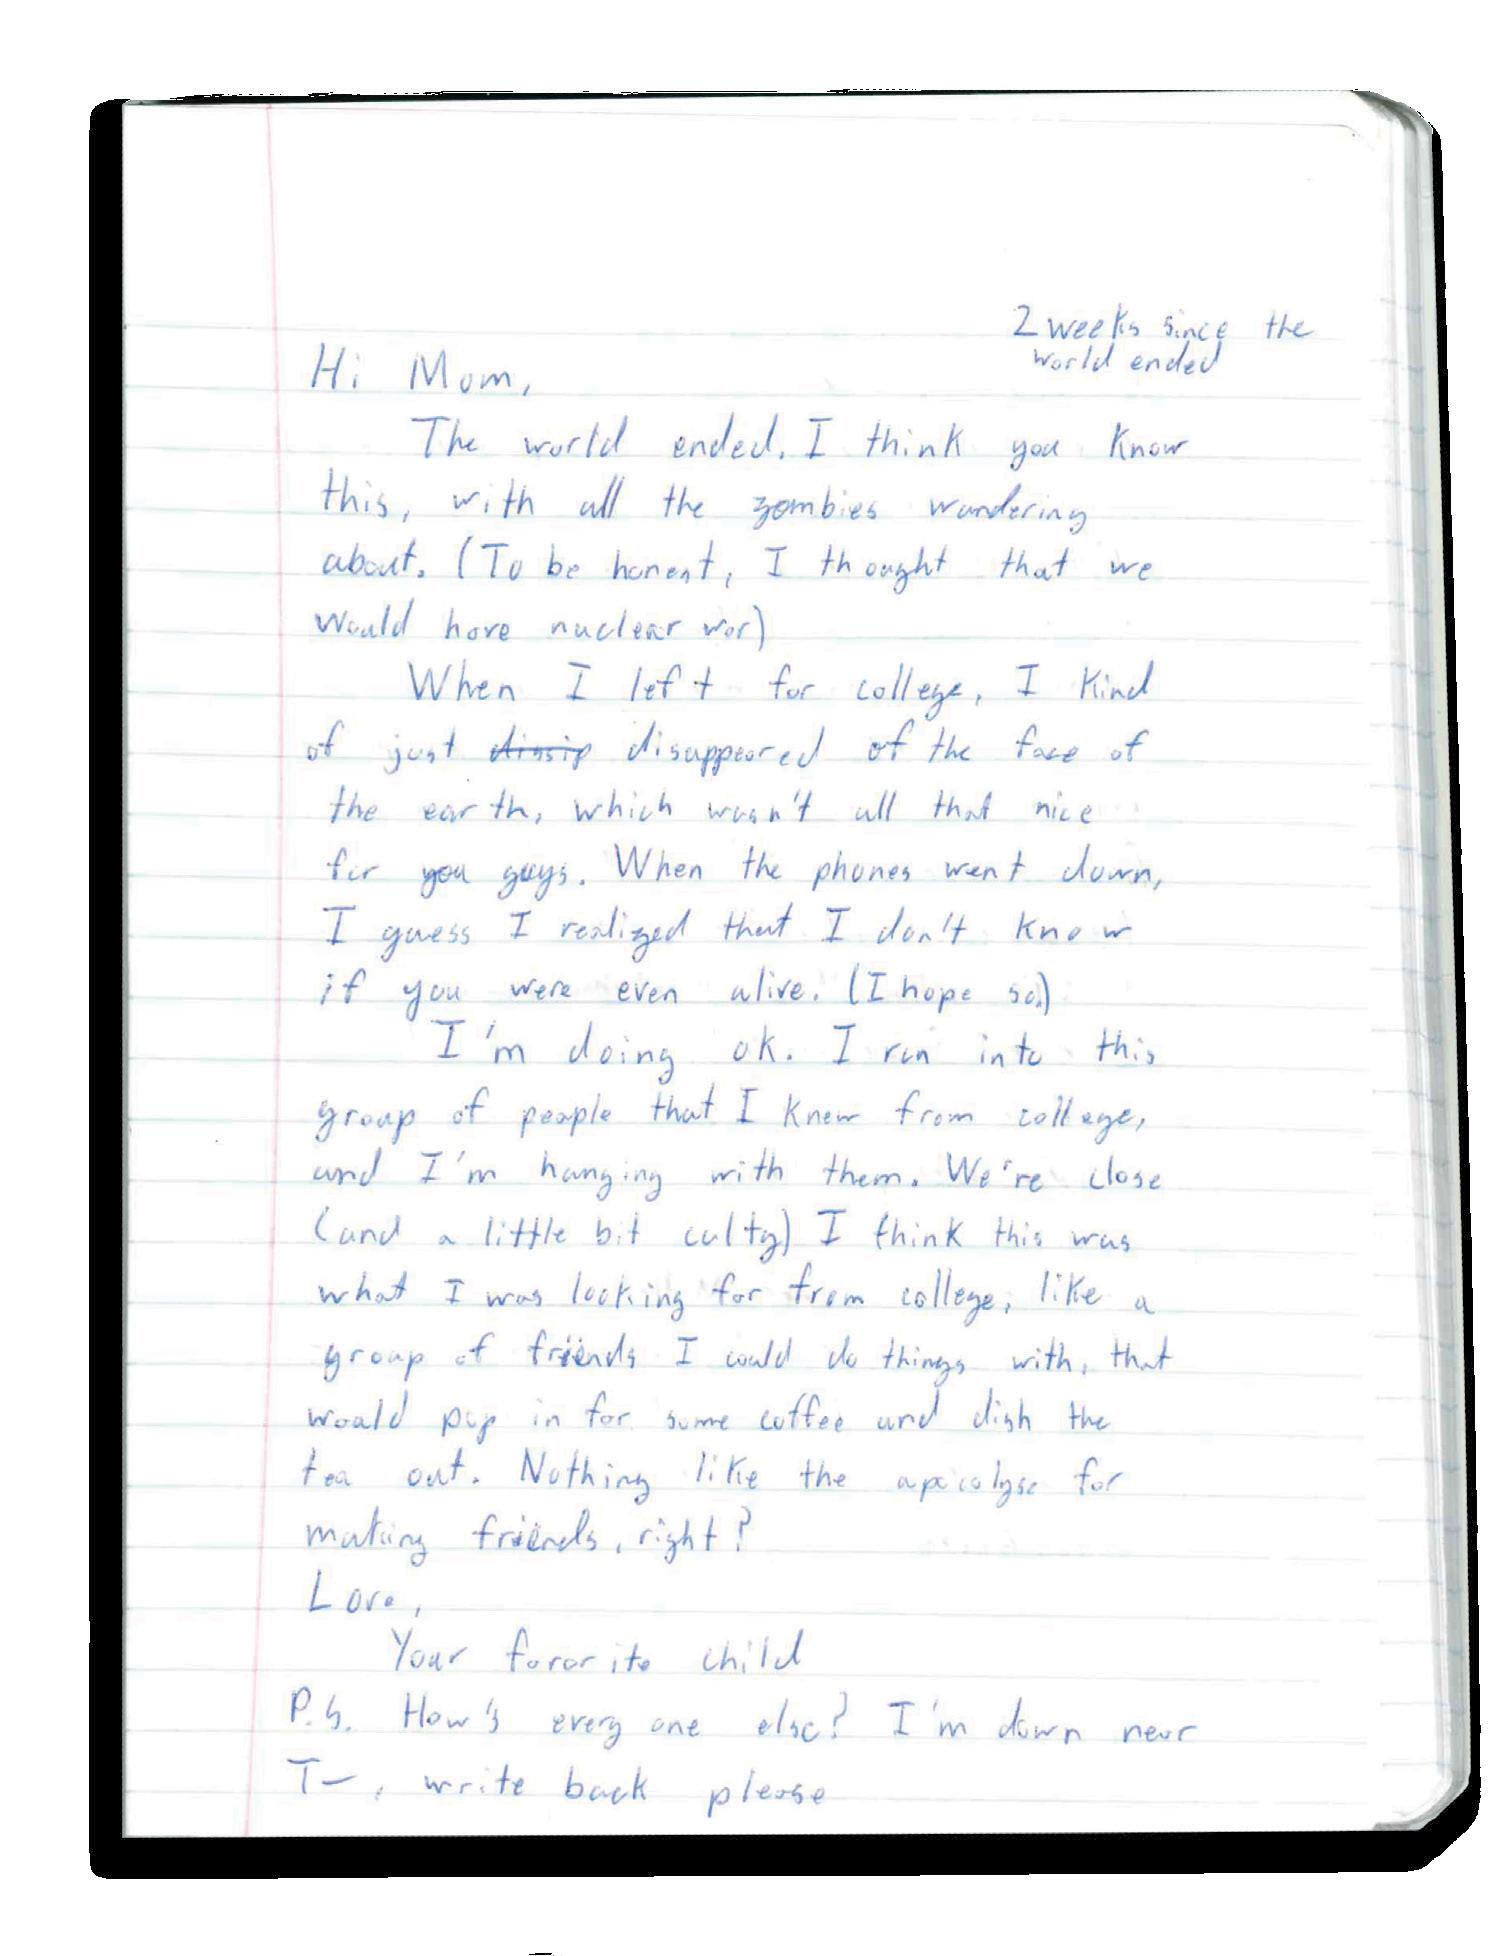 2 weeks since the
world ended
Hi Mom,
The world ended. I think you know
this, with all the zombies wandering
about. (To be honest, I thought that we
would have nuclear war)
When I left for college, I kind
of just dissip disappeared of the face of
the earth, which wasn't all that nice
for you guys. When the phones went down,
I guess I realized that I don't know
if you were even alive. (I hope so.)
I'm doing ok. I run into this
group of people that I knew from college,
and I'm hanging with them. We're close
(and a little bit culty) I think this was
what I was looking for from college, like a
group of friends I could do things with, that
would pop in for some coffee and dish the
tea out. Nothing like the apocolyse for
making friends, right?
Love,
Your favorite child
P.S. How's everyone else? I'm down near
T—, write back please